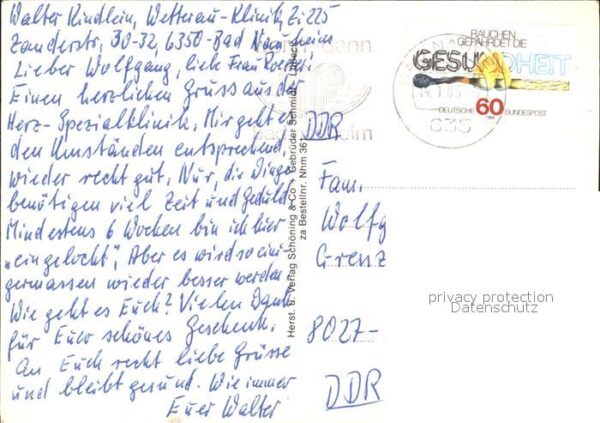 Walter Kindlein, Wetterau-Klinik, Zi 225
Zanderstr, 30-32, 6350-Bad Nauheim
Lieber Wolfgang, liebe Frau
Einen herzlichen Gruss aus der
Herz-Spezialklinik, Mir geht es
den Umständen entsprechend,
wieder recht gut, Nur, die Dinge
benötigen viel Zeit und Geduld.
Mindestens 6 Wochen bin ich hier
„eingelocht", Aber es wird so eini-
germassen wieder besser werden
Wie geht es Euch? Vielen Dank
für Euer schönes Geschenk.
An Euch recht liebe Grüsse
und bleibt gesund. Wie immer
Euer Walter
Herst. u. Verlag Schöning & Co + Gebrüder Schmidt, Lübeck
za Bestellnr. Nhm 361
dann
heim
635
RAUCHEN
GEFÄHRDET DIE
GESUNDHEIT
DEUTSCHE BUNDESPOST
60
DDR
Fam.
Wolfg
Grenz
8027-
DDR
privacy protection
Datenschutz